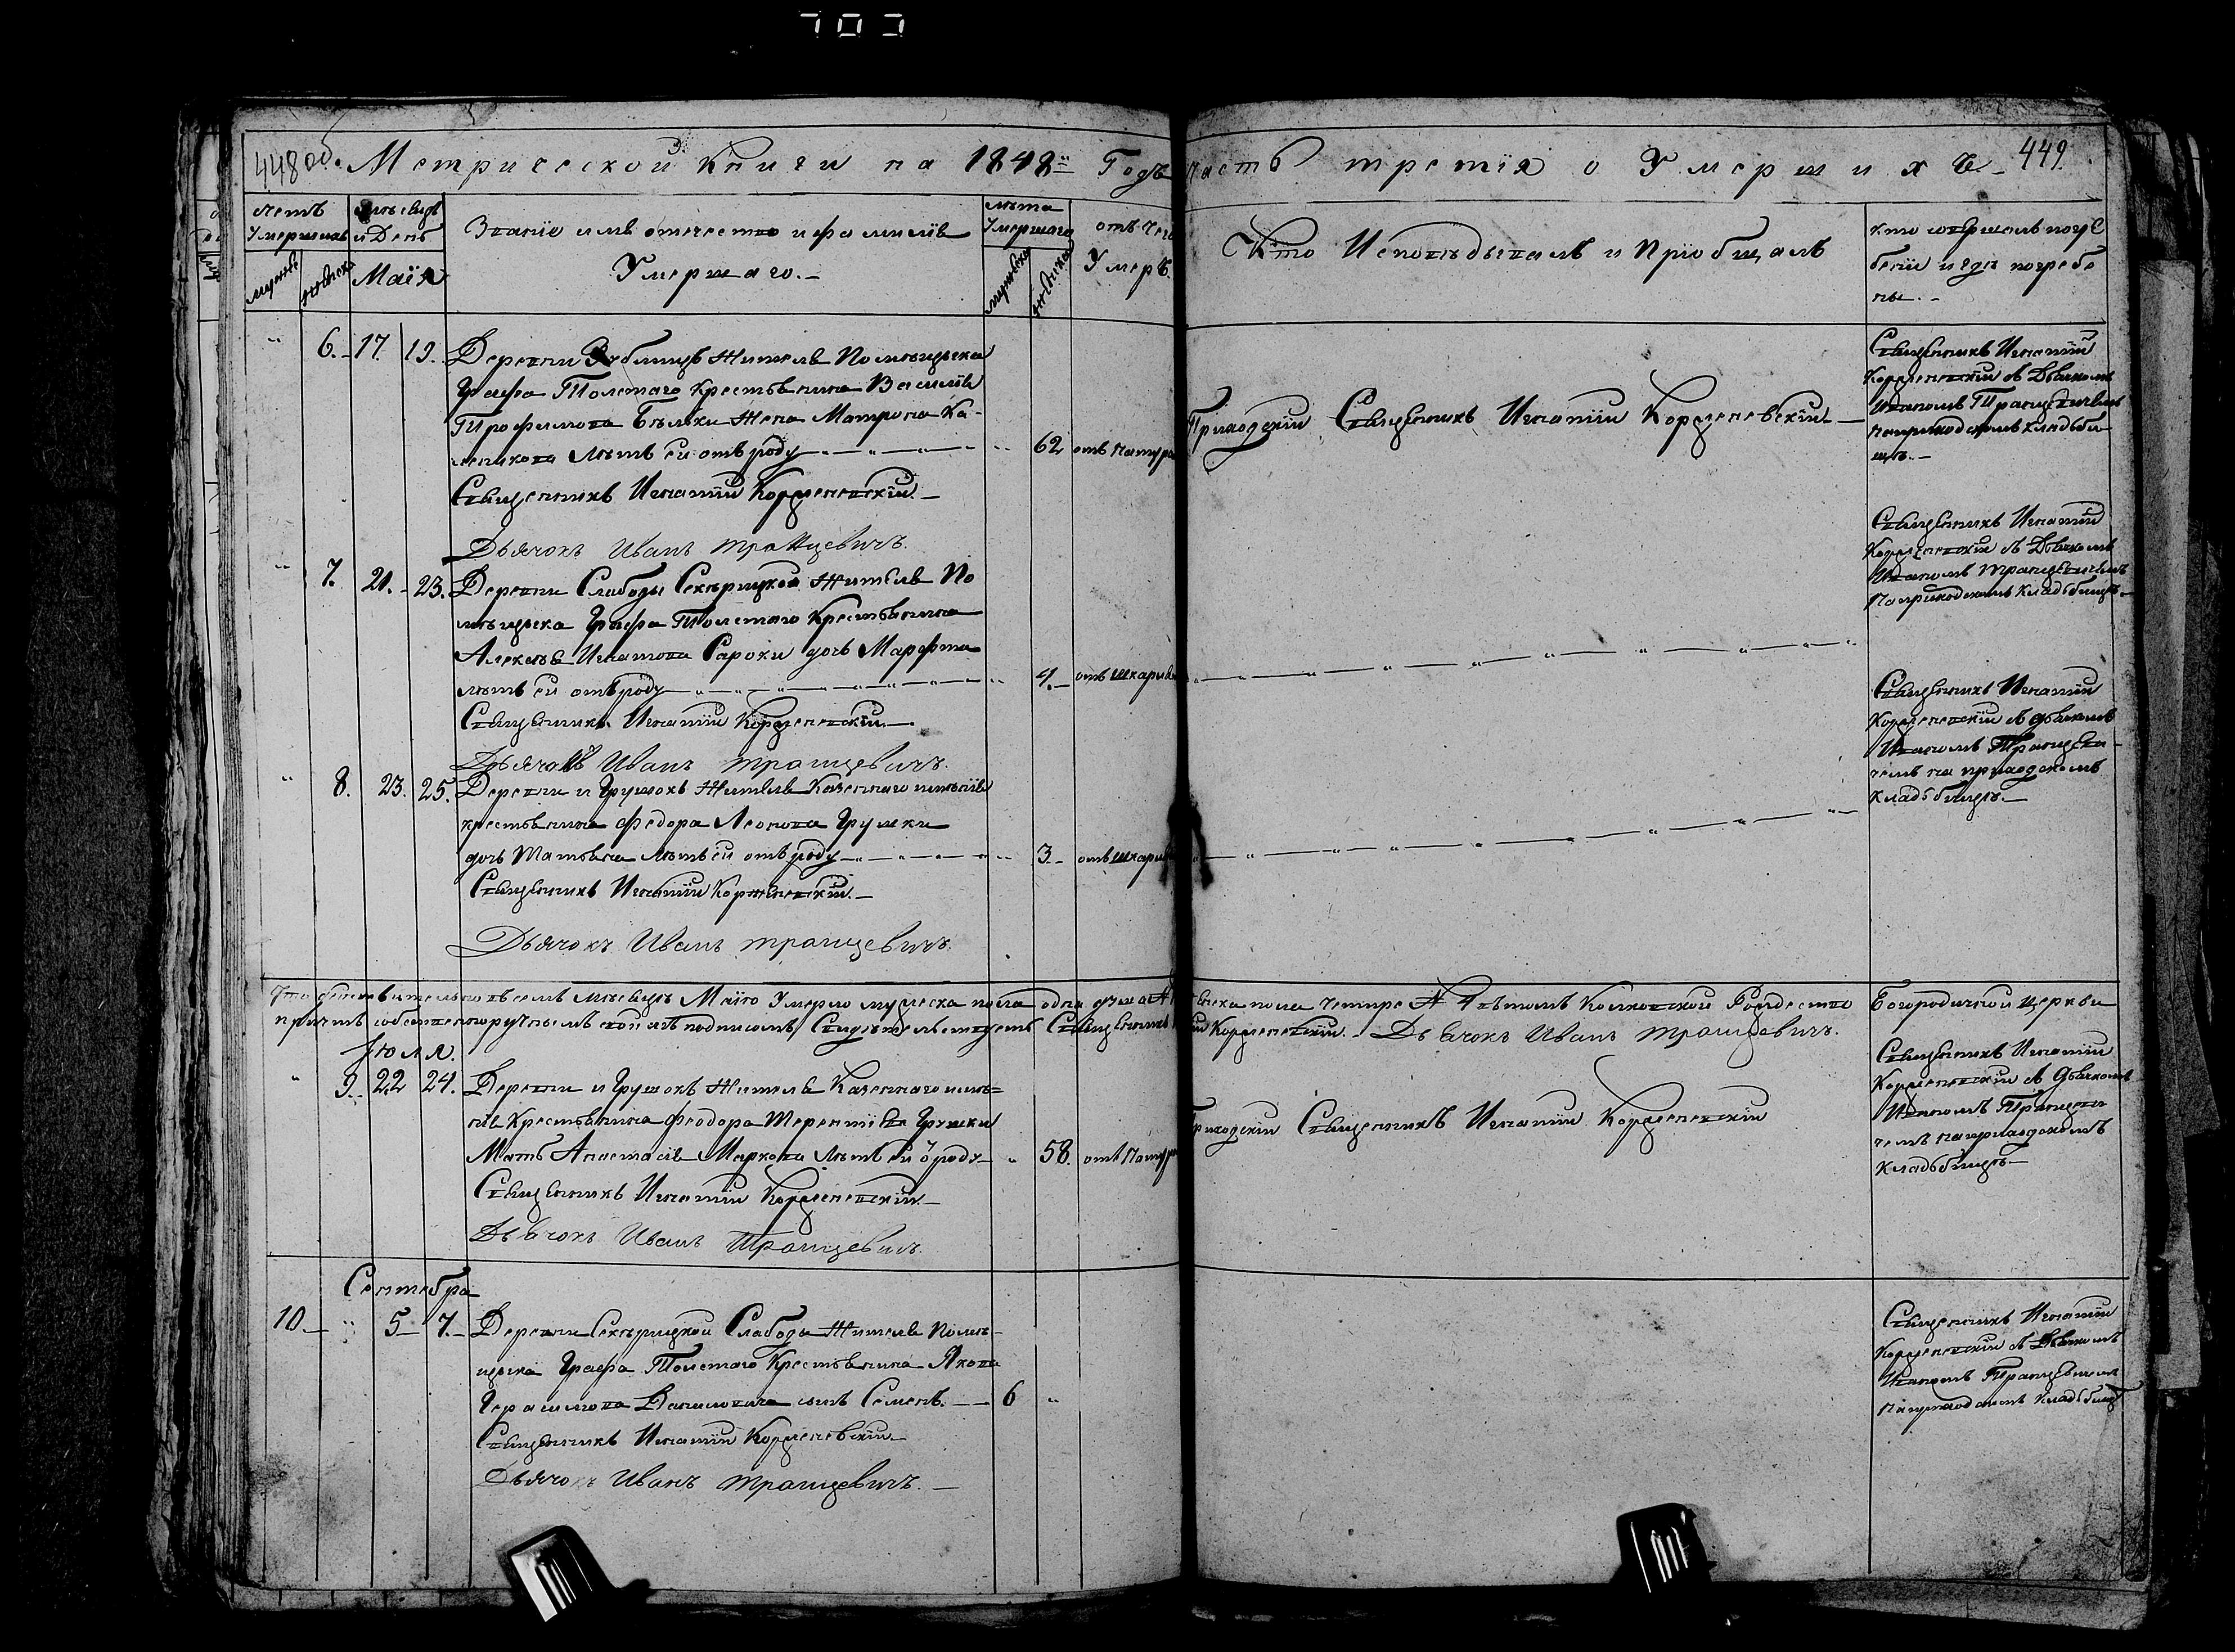 703
448 об. Метрической Книги на 1848й Годъ часть третія о Умершихъ. 449
Умершихъ
мѣсяцъ
и День
Званіе имя отечество и фамилія
Умершаго.
лѣта
Умершаго
отъ чего
Умеръ.
Кто Исповѣдывалъ и Пріобщалъ
кто совершалъ погре
беніи и гдѣ погребе
ны.
Маія
6. 17. 19. Деревни житель Помѣщика
Графа Толстаго крестьянина Василія
Трофимова Бѣльки жена Матрона
лѣтъ ей отъ роду 62 отъ
Священникъ Игнатій Корженевскій
Дьячокъ Иванъ Транцевичъ.
Приходскій Священникъ Игнатій Корженевскій
Священникъ Игнатій
Корженевскій съ Дьячкомъ
Иваномъ Транцевичемъ
на приходскомъ кладби-
щѣ.
7. 21. 23. Деревни Слабоды Секѣрицкой Житель По
мѣщика Графа Толстаго Крестьянина
Алексѣя Игнатова Сароки дочь Марфа
лѣтъ ей отъ роду 4.
Священникъ Игнатій Корженевскій
Дьячокъ Иванъ Транцевичъ.
Священникъ Игнатій
Корженевскій съ Дьячкомъ
Иваномъ Транцевичемъ
На приходскомъ кладбищѣ.
8. 23. 25. Деревни Грушокъ Житель Казеннаго имѣнія
крестьянина Федора Леонова Грушки
дочь Татьяна лѣтъ ей отъ роду 3
Священникъ Игнатій Корженевскій
Дьячокъ Иванъ Транцевичъ.
Священникъ Игнатій
Корженевскій съ дьячкомъ
Иваномъ Транцеви-
чемъ на приходскомъ
кладбищѣ.
Что дѣйствительно въ семъ мѣсяцѣ Маію Умерло мужеска пола одна душа А женска пола четыре А въ томъ Рождество Богородичной церкви
причтъ собственноручнымъ своимъ подписомъ Свидѣтельствуетъ Священникъ Игнатій Корженевскій Дьячокъ Иванъ Транцевичъ.
Іюля.
9. 22 24. Деревни Грушокъ Житель Казеннаго имѣ=
нія Крестьянина Феодора Терентіева Грушки
Мать Анастасія Маркова лѣтъ ей ѿ роду 58.
Священникъ Игнатій Корженевскій
Дьячокъ Иванъ Транцевичъ.
Приходскій Священникъ Игнатій Корженевскій
Священникъ Игнатій
Корженевскій съ дьячкомъ
Иваномъ Транцеви
чемъ на приходскомъ
кладбищѣ
Сентебра
10 5 7. Деревни Секѣрицкой Слабоды Житель Помѣ-
щика Графа Толстаго Крестьянина Якова
Герасимова Данилевича сынъ Семенъ. 6
Священникъ Игнатій Корженевскій
Дьячокъ Иванъ Транцевичъ.
Священникъ Игнатій
Корженевскій съ Дьячкомъ
Иваномъ Транцевичемъ
На приходскомъ кладбищѣ